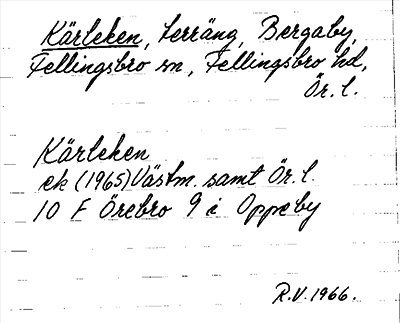 Kärleken, terräng, Bergaby,
Fellingsbro sn, Fellingsbro hd,
Ör. l.
Kärleken
ek (1965) Västm. samt Ör. l.
10 F Örebro 9 i Oppeby
R.V. 1966.